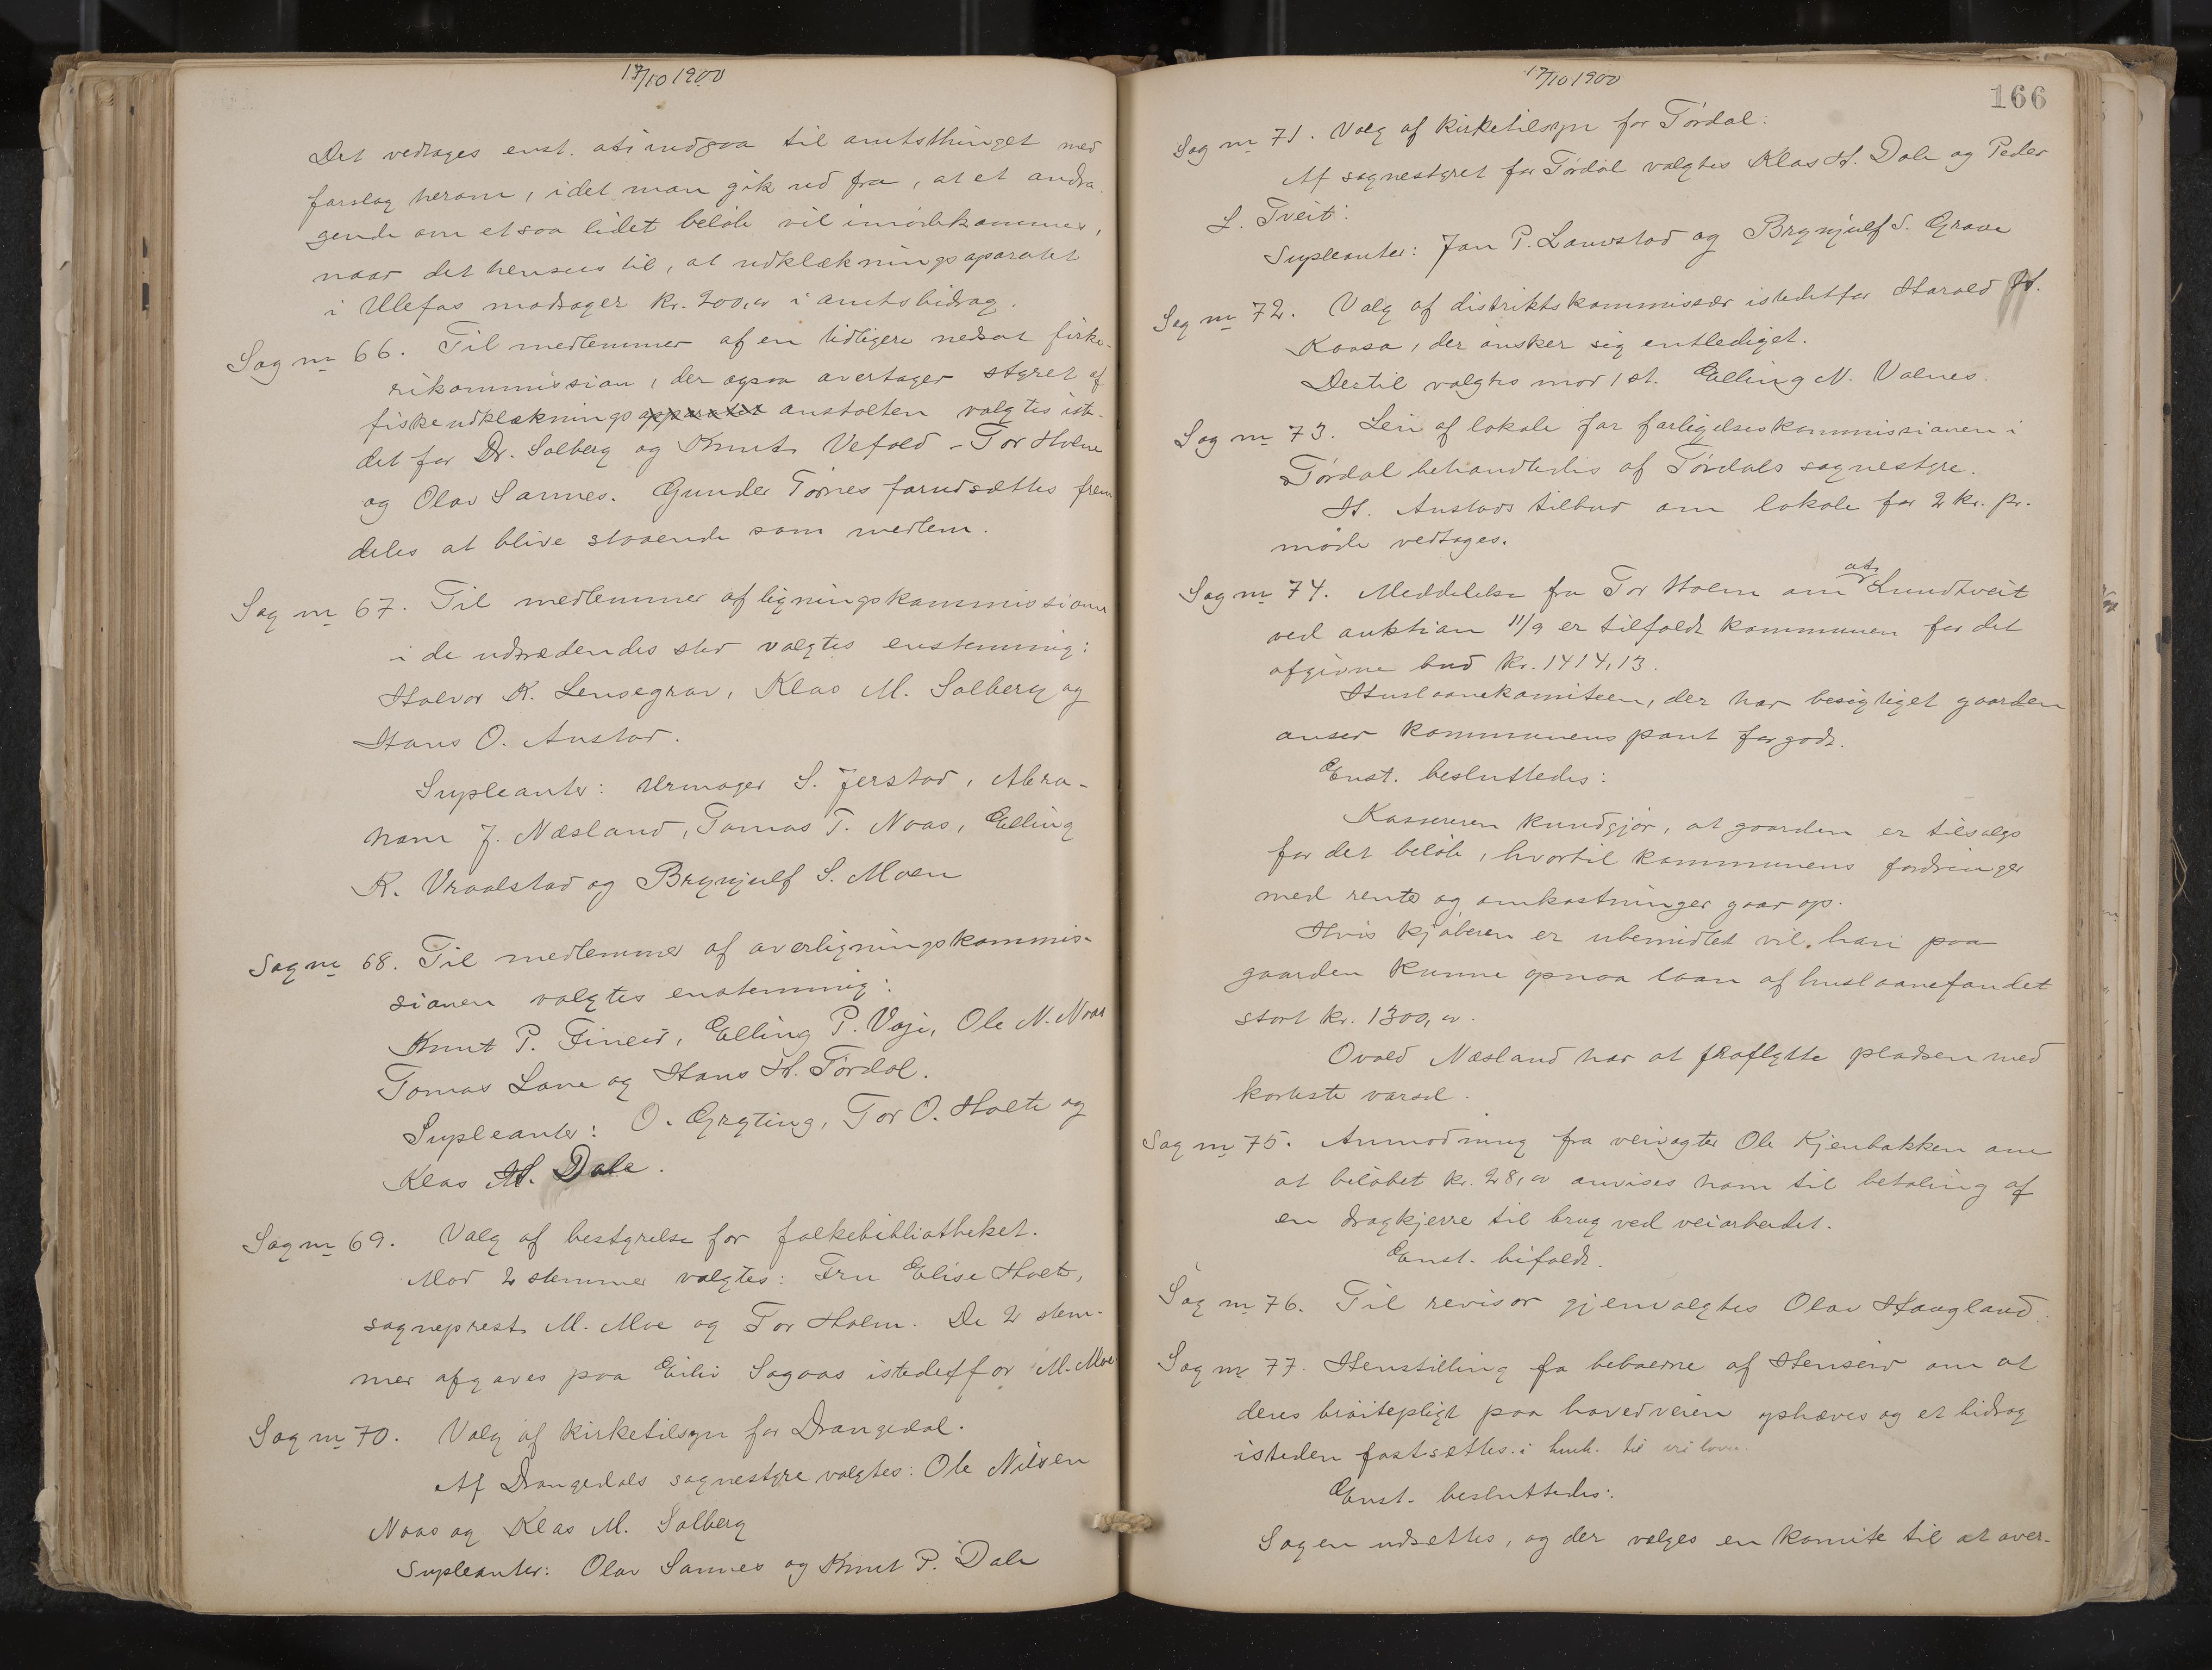 17/10 1900
Det vedtages enst. at indgaa til amtsthinget med
forslag herom, idet man gik ud fra, at et andra
gende om et saa lidet beløb vil imødekommes,
naar det henses til, at udklækningsaparatet
i Ulefos modtager kr. 200,00 i amtsbidrag.
Sag nr 66. Til medlemmer af en tidligere nedsat fiske-
rikommission, der ogsaa overtager styret af
fiskeudklæknings apparatet anstalten valgtes iste-
det for Dr. Solberg og Knut Vefald - Tor Holm
og Olav Sannes. Gunder Tørnes forudsættes frem
deles at blive staaende som medlem.
Sag nr 67. Til medlemmer af ligningskommissionen
i de udtrædendes sted valgtes enstemmig:
Halvor K. Lensegrav, Klas M. Solberg og
Hans O. Austad.
Supleanter: Urmager S. Jerstad, Abra-
ham J. Næsland, Tomas T. Noas, Elling
K. Vraalstad og Brynjulf S. Moen
Sag nr 68. Til medlemmer af overligningskommis-
sionen valgtes enstemmig:
Knut P. Fineid, Elling P. Voje, Ole N. Noas
Tomas Lane og Hans H. Tørdal.
Supleanter: O. Gryting, Tor O. Holte og
Klas H. Dale.
Sag nr 69. Valg af bestyrelse for folkebibliotheket.
Mod 2 stemmer valgtes: Fru Elise Holte,
sogneprest M. Moe og Tor Holm. De 2 stem-
mer afgaves paa Eiliv Sagaas istedetfor M. Moe
Sag nr 70. Valg af kirketilsyn for Drangedal.
Af Drangedals sognestyre valgtes: Ole Nilsen
Noas og Klas M. Solberg
Supleanter: Olav Sannes og Knut P. Dale
17/10 1900
166
Sag nr 71. Valg af kirketilsyn for Tørdal:
Af sognestyret for Tørdal valgtes Klas H. Dale og Peder
L. Tveit.
Supleanter: Jan P. Lauvstad og Brynjulf S. Grave
Sag nr 72. Valg af distriktskommissær istedetfor Harald H.
Kaasa, der ønsker sig entlediget.
Dertil valgtes mod 1 st. Elling N. Valnes.
Sag nr 73. Leie af lokale for forligelseskommissionen i
Tørdal behandledes af Tørdals sognestyre.
H. Austads tilbud om lokale for 2 kr. pr.
møde vedtages.
Sag nr 74. Meddelelse fra Tor Holm om at Lundtveit
ved auktion 11/9 er tilfaldt kommunen for det
afgivne bud kr. 1414,13.
Huslaanekomiteen, der har besigtiget gaarden
anser kommunens pant for godt.
Enst. besluttedes:
Kassereren kundgjør, at gaarden er tilsalgs
for det beløb, hvortil kommunens fordringer
med renter og omkostninger gaar op.
Hvis kjøberen er ubemidlet vil han paa
gaarden kunne opnaa laan af huslaanefondet
stort kr. 1300,00.
Ovald Næsland har at fraflytte pladsen med
korteste varsel.
Sag nr 75. Anmodning fra veivogter Ole Kjenbakken om
at beløbet kr. 28,00 anvises ham til betaling af
en dragkjerre til brug ved veiarbeidet.
Enst. bifaldt.
Sag nr 76. Til revisor gjenvalgtes Olav Haugland.
Sag nr 77. Henstilling fra beboerne af Henseid om at
deres brøitepligt paa hovedveien ophæves og et bidrag
isteden fastsættes i henh. til veiloven.
Enst. besluttedes:
Sagen udsættes, og der vælges en komite til at over-